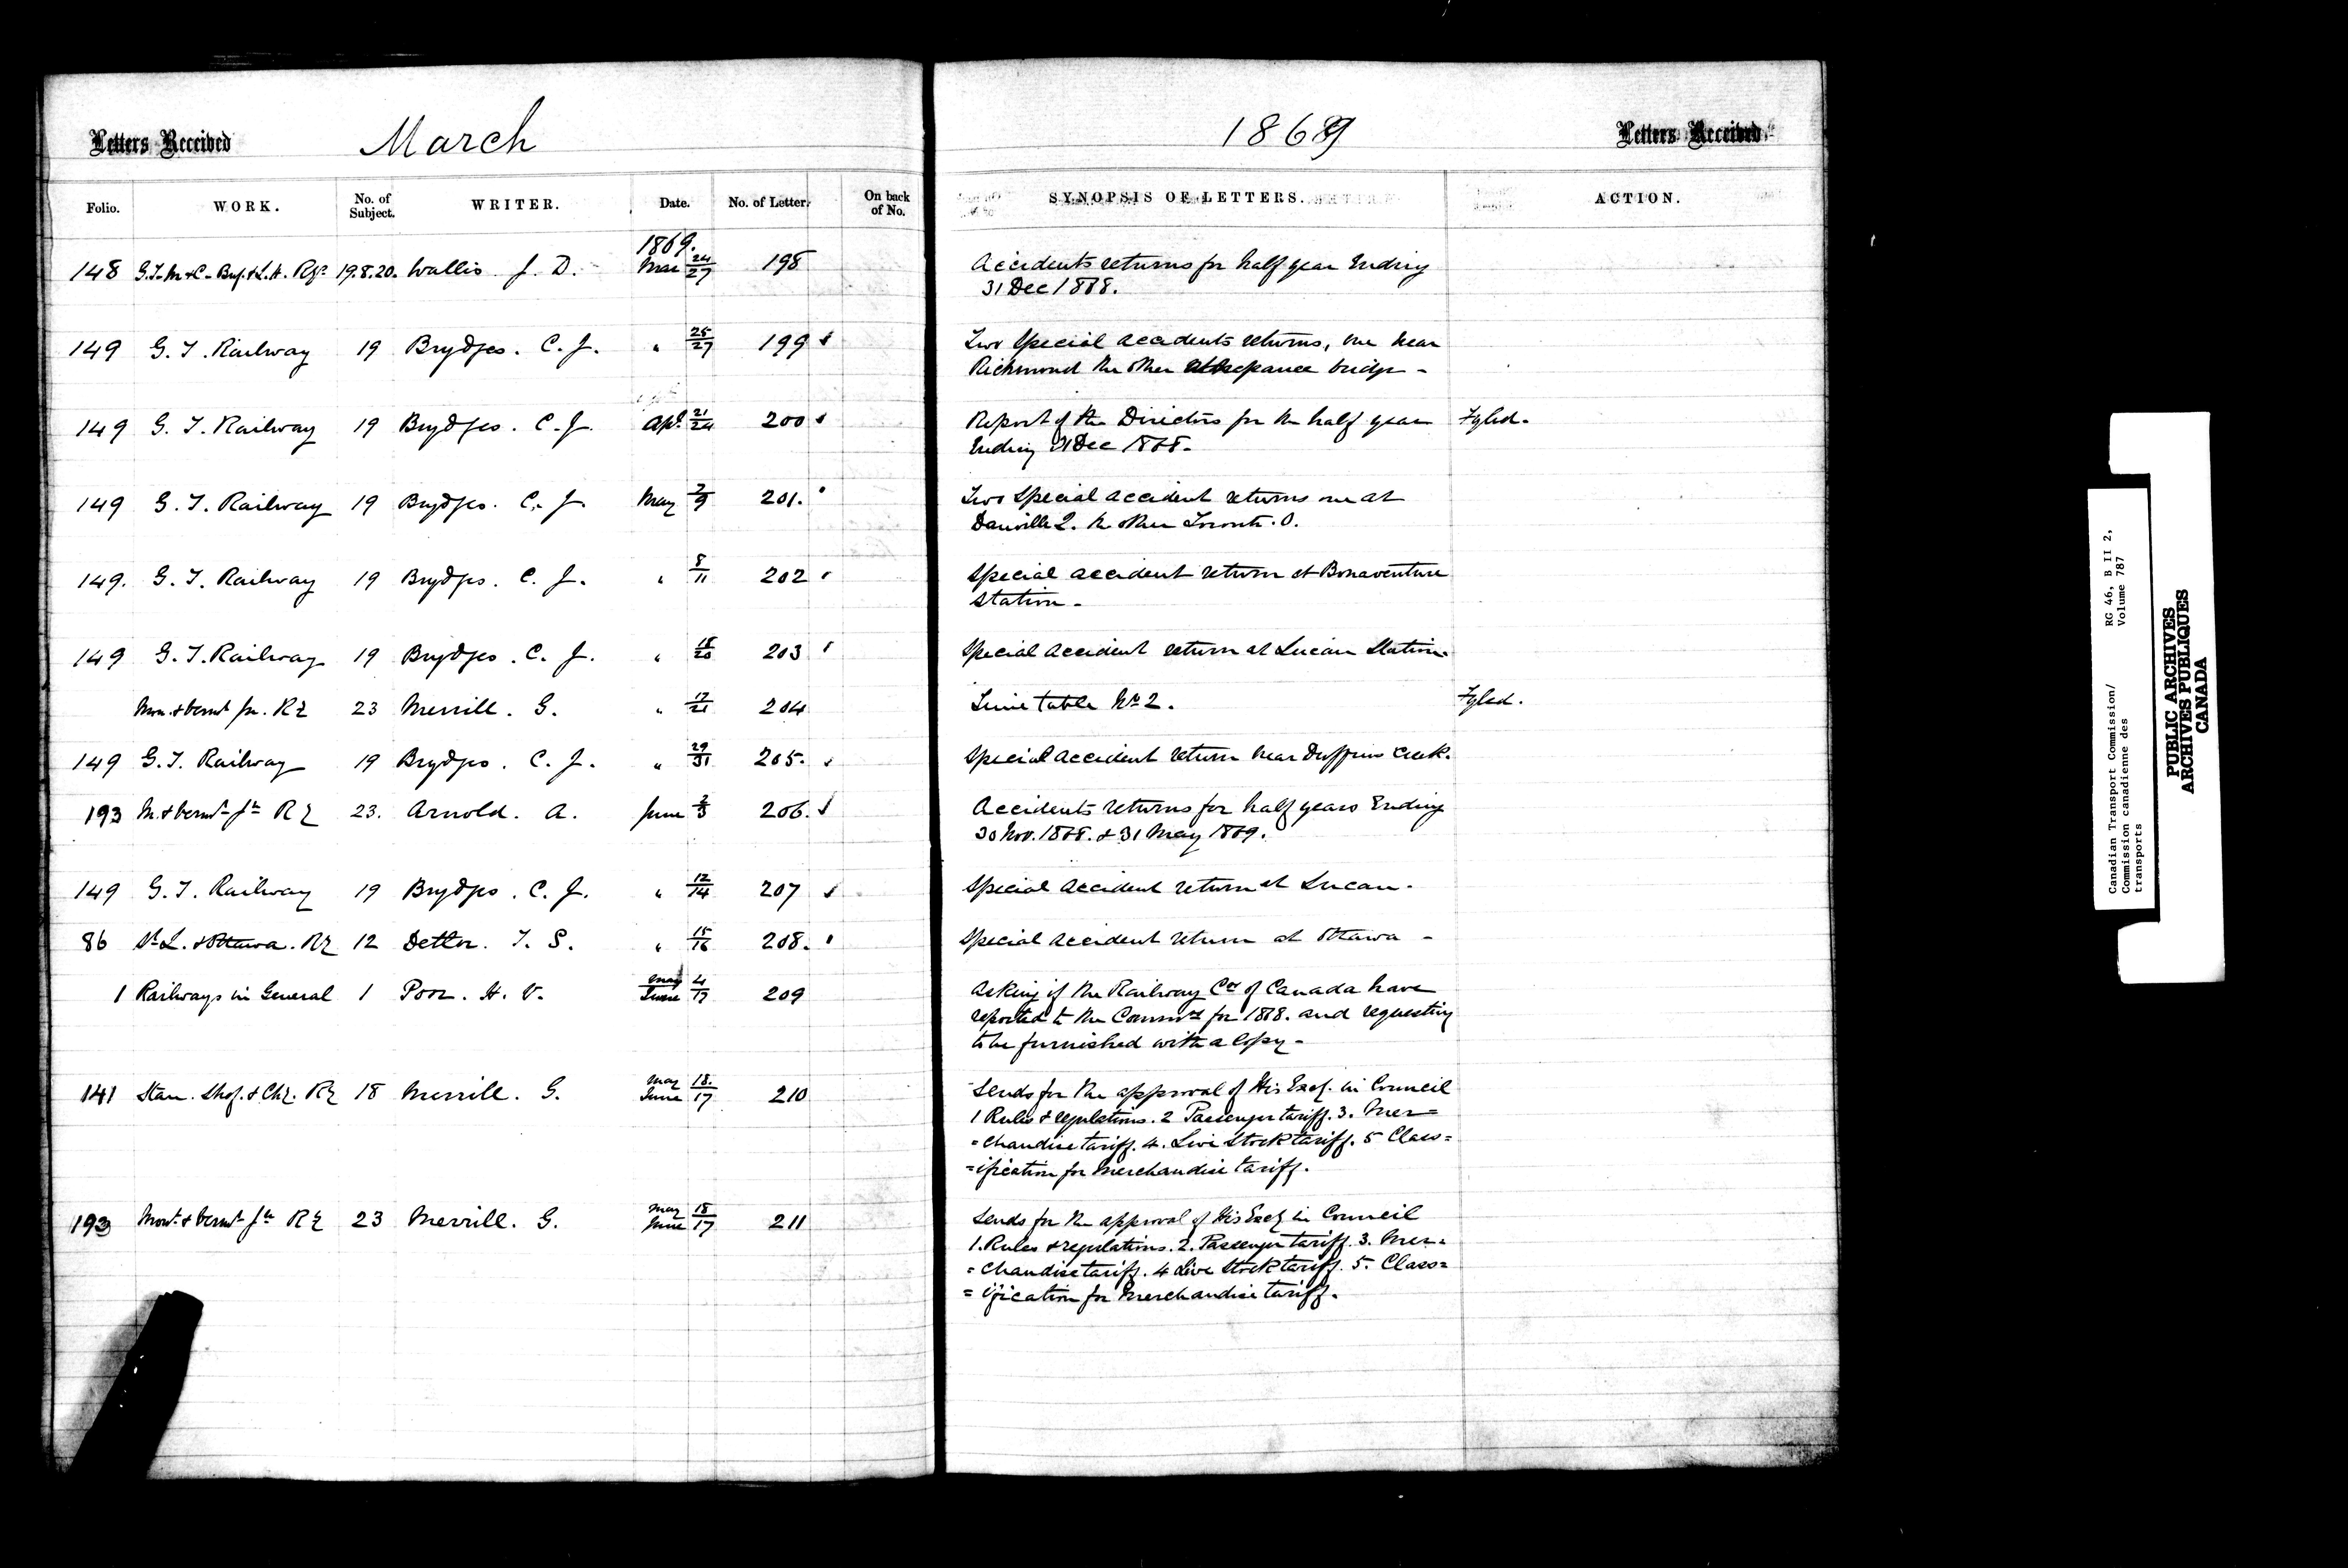 Letters Received March 1869 Letters Received
Folio. WORK. No. of Subject. WRITER. Date. No. of Letter. On back of No. SYNOPSIS OF LETTERS. ACTION.
1869.
148 G.T. M & C- Buf. & L.H. Rys. 19.8.20. Wallis J. D. Mar 24/27 198 Accidents returns for half year Ending
31 Dec 1868.
149 G. T. Railway 19 Brydges. C. J. " 25/27 199 Two Special accidents returns, one near
Richmond the other bridge -
149 G. T. Railway 19 Brydges. C. J. Apl. 21/24 200 Report of the Directors for the half year Fyled.
Ending 31 Dec 1868.
149 G. T. Railway 19 Brydges. C. J. May 7/9 201. Two Special accident returns one at
Danville Q. the other Toronto. O.
149. G. T. Railway 19 Brydges. C. J. " 8/11 202 Special accident return at Bonaventure
Station -
149 G. T. Railway 19 Brydges. C. J. " 18/20 203 Special accident return at Lucan Station.
Mon. & Vermt Jn. Ry 23 Merrill. G. " 17/21 204 Time table No 2. Fyled.
149 G. T. Railway 19 Brydges. C. J. " 29/31 205. Special accident return near Duffins Creek.
193 M. & Vermt Jn Ry 23. Arnold. A. June 2/3 206. Accidents returns for half years Ending
30 Nov. 1868. & 31 May 1869.
149 G. T. Railway 19 Brydges. C. J. " 12/14 207 Special accident return at Lucan.
86 St L. & Ottawa. Ry 12 Detlor. T. S. " 15/16 208. Special accident return at Ottawa -
1 Railways in General 1 Poor. H. V. May 4/June 17 209 Asking if the Railway Cos of Canada have
reported to the Commrs for 1868. and requesting
to be furnished with a Copy -
141 Stan. Shef. & Chy. Ry 18 Merrill. G. May 18./June 17 210 Sends for the approval of His Excy. in Council
1 Rules & regulations. 2 Passenger tariff. 3. Mer=
=chandise tariff. 4. Live Stock tariff. 5 Class=
=ification for Merchandise tariff.
193 Mont. & Vermt Jn Ry 23 Merrill. G. May 18/June 17 211 Sends for the approval of His Excy in Council
1. Rules & regulations. 2. Passenger tariff. 3. Mer=
=chandise tariff. 4 Live Stock tariff. 5. Class=
=ification for Merchandise tariff.
Canadian Transport Commission/ RG 46, B II 2,
Commission canadienne des Volume 787
transports
PUBLIC ARCHIVES
ARCHIVES PUBLIQUES
CANADA